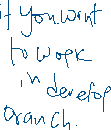 if you want
to work
in develop
branch.